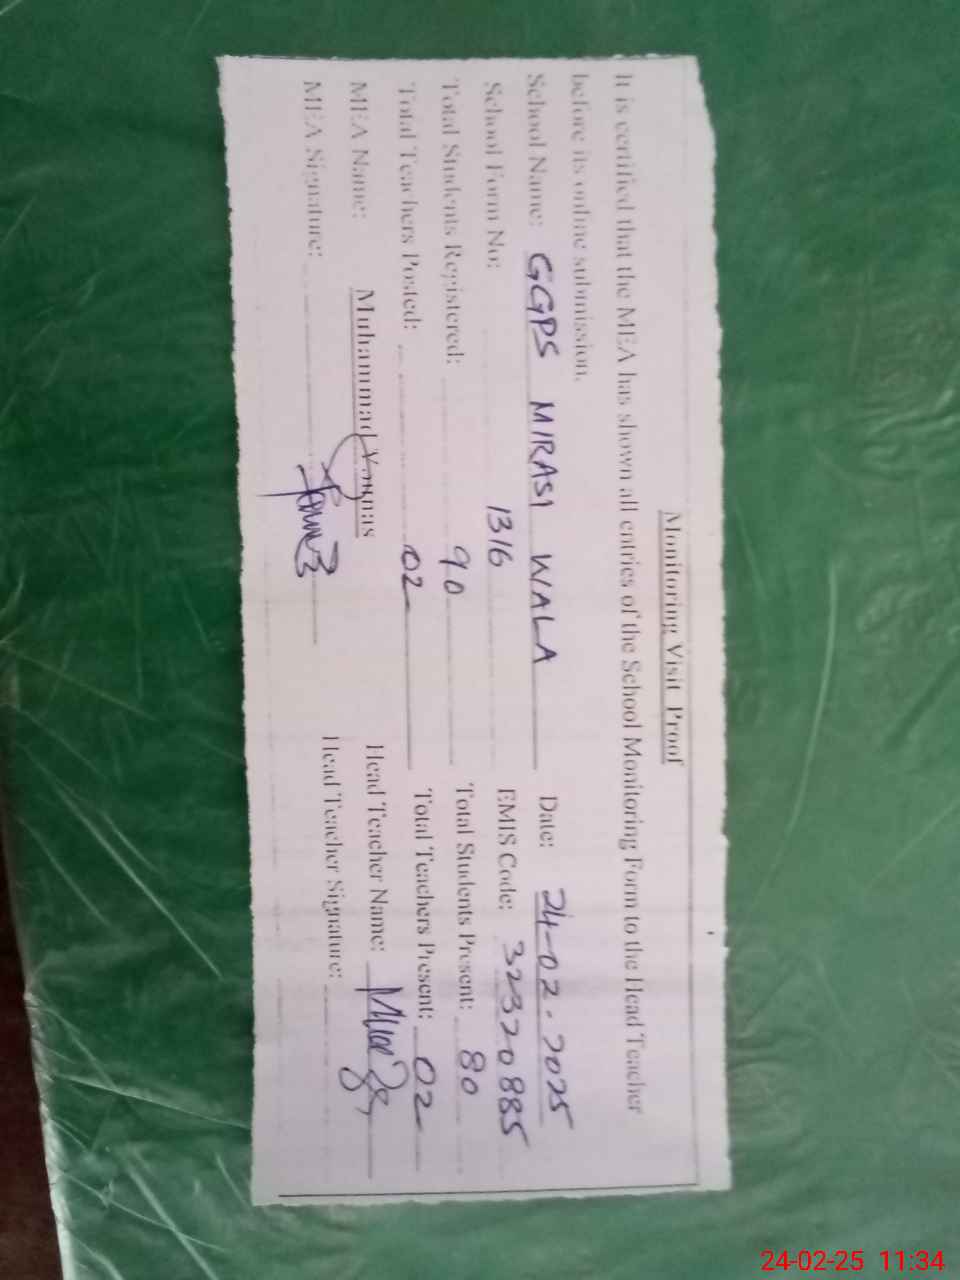 Monitoring Visit Proof
It is certified that the MEA has shown all entries of the School Monitoring Form to the Head Teacher
before its online submission.
School Name: GGPS MIRASI WALA Date: 24-02-2025
School Form No: 1316 EMIS Code: 32320885
Total Students Registered: 90 Total Students Present: 80
Total Teachers Posted: 02 Total Teachers Present: 02
MEA Name: Muhammad Younas Head Teacher Name:
MEA Signature: Head Teacher Signature:
24-02-25 11:34